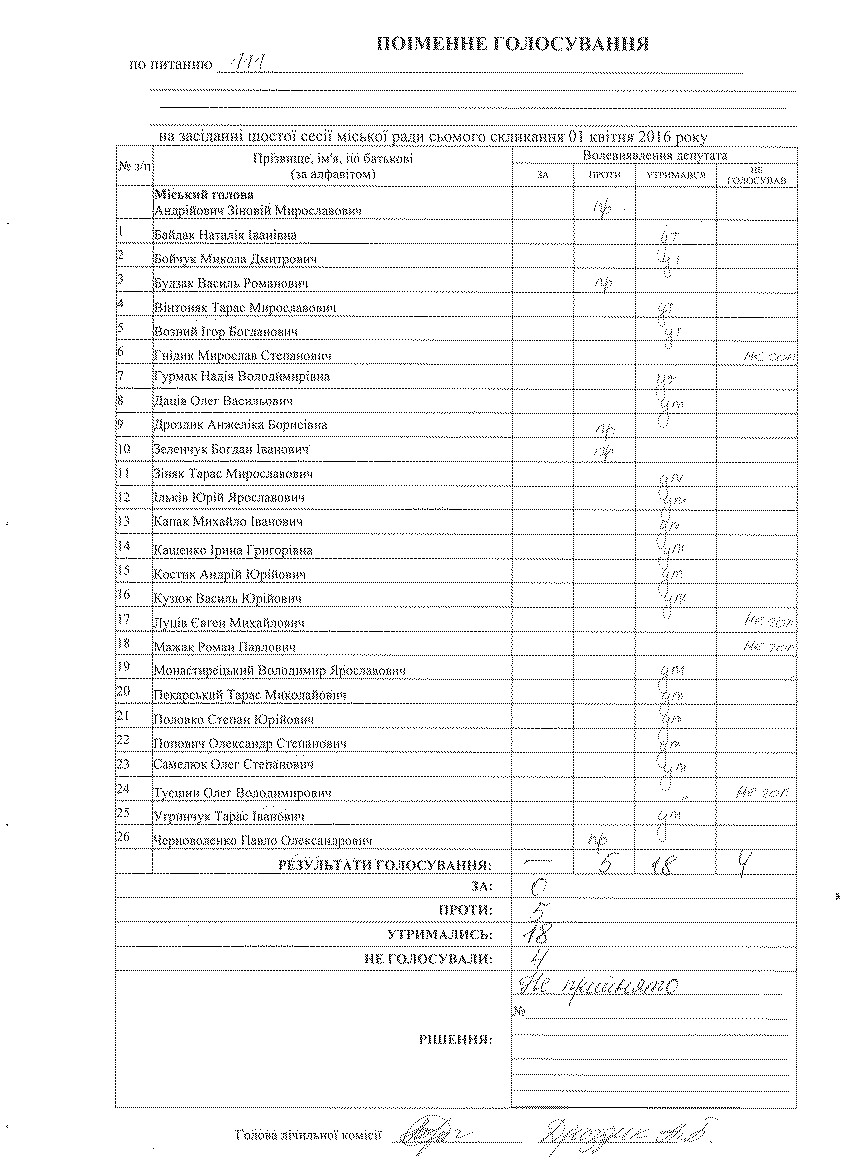 ПОІМЕННЕ ГОЛОСУВАННЯ
по питанню 111
на засіданні шостої сесії міської ради сьомого скликання 01 квітня 2016 року
№ з/п Прізвище, ім'я, по батькові (за алфавітом) Волевиявлення депутата
ЗА ПРОТИ УТРИМАВСЯ НЕ ГОЛОСУВАВ
Міський голова
Андрійович Зіновій Мирославович пр
1 Байдак Наталія Іванівна ут
2 Бойчук Микола Дмитрович ут
3 Будзак Василь Романович пр
4 Вінтоняк Тарас Мирославович ут
5 Возний Ігор Богданович ут
6 Гнідик Мирослав Степанович не гол
7 Гурмак Надія Володимирівна ут
8 Даців Олег Васильович ут
9 Дроздик Анжеліка Борисівна пр
10 Зеленчук Богдан Іванович пр
11 Зіняк Тарас Мирославович ут
12 Ільків Юрій Ярославович ут
13 Капак Михайло Іванович ут
14 Кащенко Ірина Григорівна ут
15 Костюк Андрій Юрійович ут
16 Кузюк Василь Юрійович ут
17 Луців Євген Михайлович не гол
18 Мажак Роман Павлович не гол
19 Монастирецький Володимир Ярославович ут
20 Пекарський Тарас Миколайович ут
21 Половко Степан Юрійович ут
22 Попович Олександр Степанович ут
23 Самелюк Олег Степанович ут
24 Олег Володимирович не гол
25 Угринчук Тарас Іванович ут
26 Черноволенко Павло Олександрович пр
РЕЗУЛЬТАТИ ГОЛОСУВАННЯ: — 5 18 4
ЗА: 0
ПРОТИ: 5
УТРИМАЛИСЬ: 18
НЕ ГОЛОСУВАЛИ: 4
Не прийнято
№
РІШЕННЯ:
Голова лічильної комісії Дроздик А.Б.